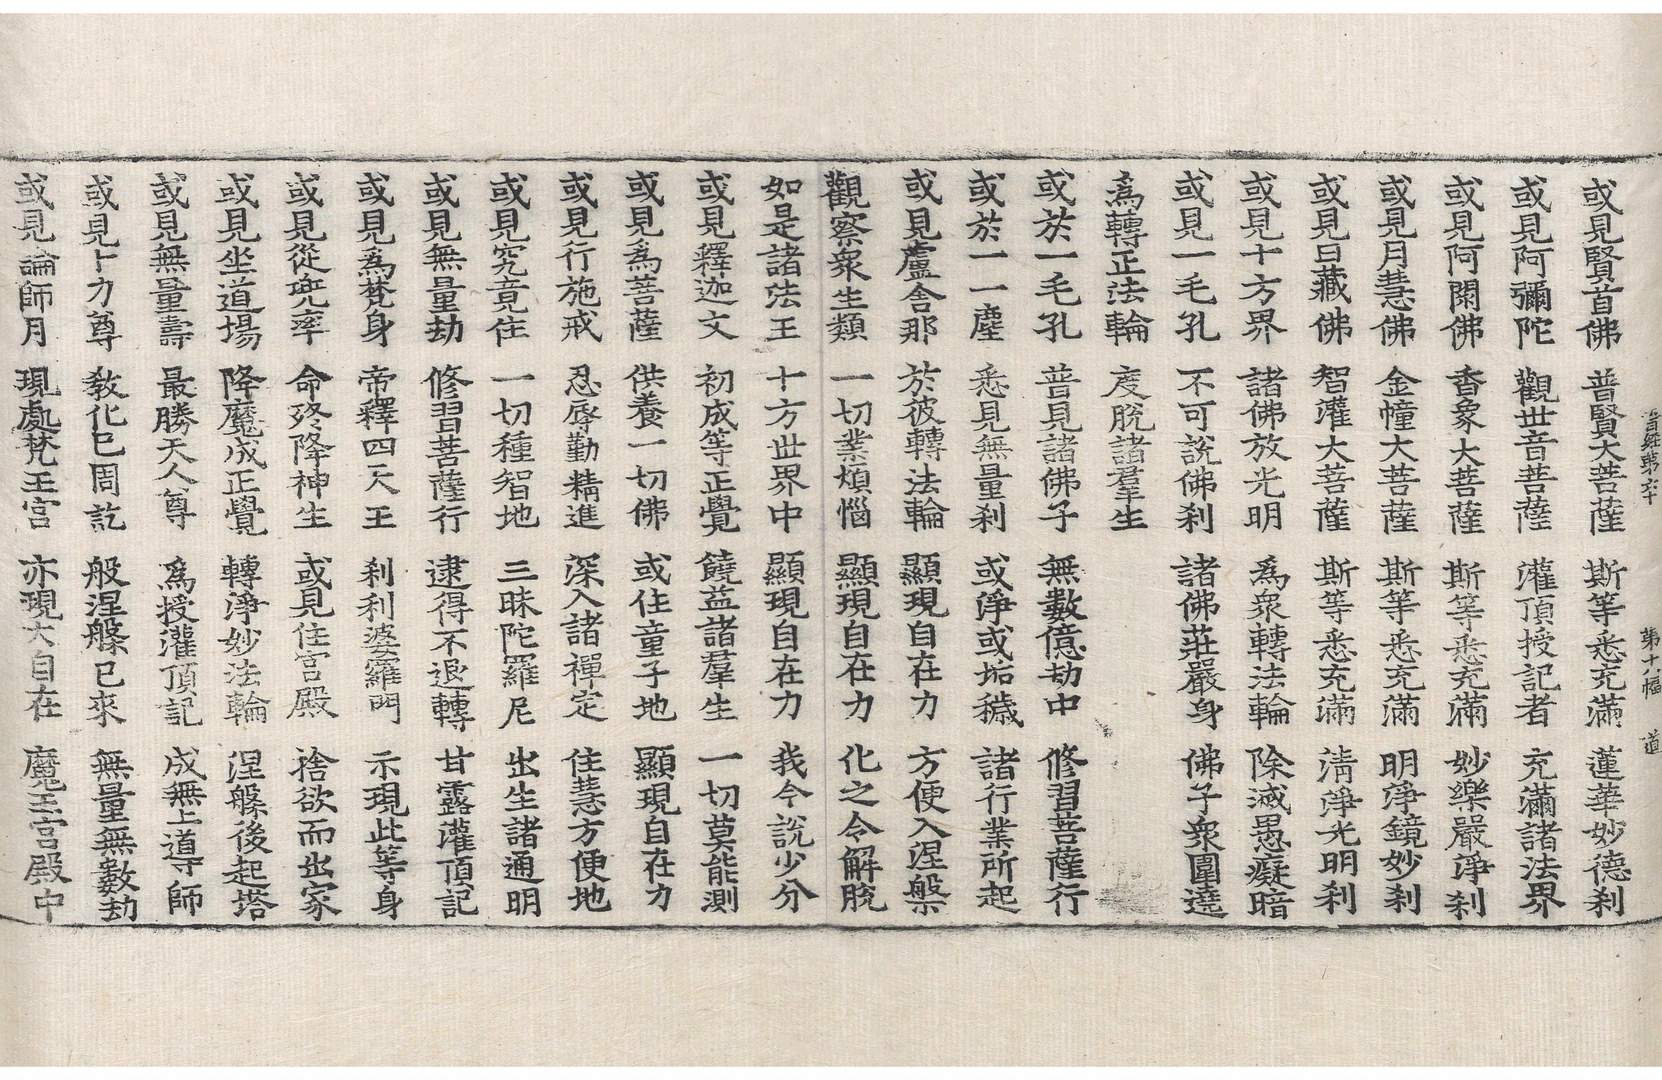 晉經第六十 第十八幅 道
或見賢首佛 普賢大菩薩 斯等悉充滿 蓮華妙德刹
或見阿彌陀 觀世音菩薩 灌頂授記者 充滿諸法界
或見阿閦佛 香象大菩薩 斯等悉充滿 妙樂嚴淨刹
或見月慧佛 金幢大菩薩 斯等悉充滿 明淨鏡妙刹
或見日藏佛 智灌大菩薩 斯等悉充滿 淸淨光明刹
或見十方界 諸佛放光明 爲衆轉法輪 除滅愚癡暗
或見一毛孔 不可說佛刹 諸佛莊嚴身 佛子衆圍遶
爲轉正法輪 度脫諸羣生
或於一毛孔 普見諸佛子 無數億劫中 修習菩薩行
或於一一塵 悉見無量刹 或淨或垢穢 諸行業所起
或見盧舍那 於彼轉法輪 顯現自在力 方便入涅槃
觀察衆生類 一切業煩惱 顯現自在力 化之令解脫
如是諸法王 十方世界中 顯現自在力 我今說少分
或見釋迦文 初成等正覺 饒益諸羣生 一切莫能測
或見爲菩薩 供養一切佛 或住童子地 顯現自在力
或見行施戒 忍辱勤精進 深入諸禪定 住慧方便地
或見究竟住 一切種智地 三昧陀羅尼 出生諸通明
或見無量劫 修習菩薩行 逮得不退轉 甘露灌頂記
或見爲梵身 帝釋四天王 刹利婆羅門 示現此等身
或見從兜率 命終降神生 或見住宮殿 捨欲而出家
或見坐道場 降魔成正覺 轉淨妙法輪 涅槃後起塔
或見無量壽 最勝天人尊 爲授灌頂記 成無上導師
或見十力尊 敎化已周訖 般涅槃已來 無量無數劫
或見論師月 現處梵王宮 亦現大自在 魔王宮殿中